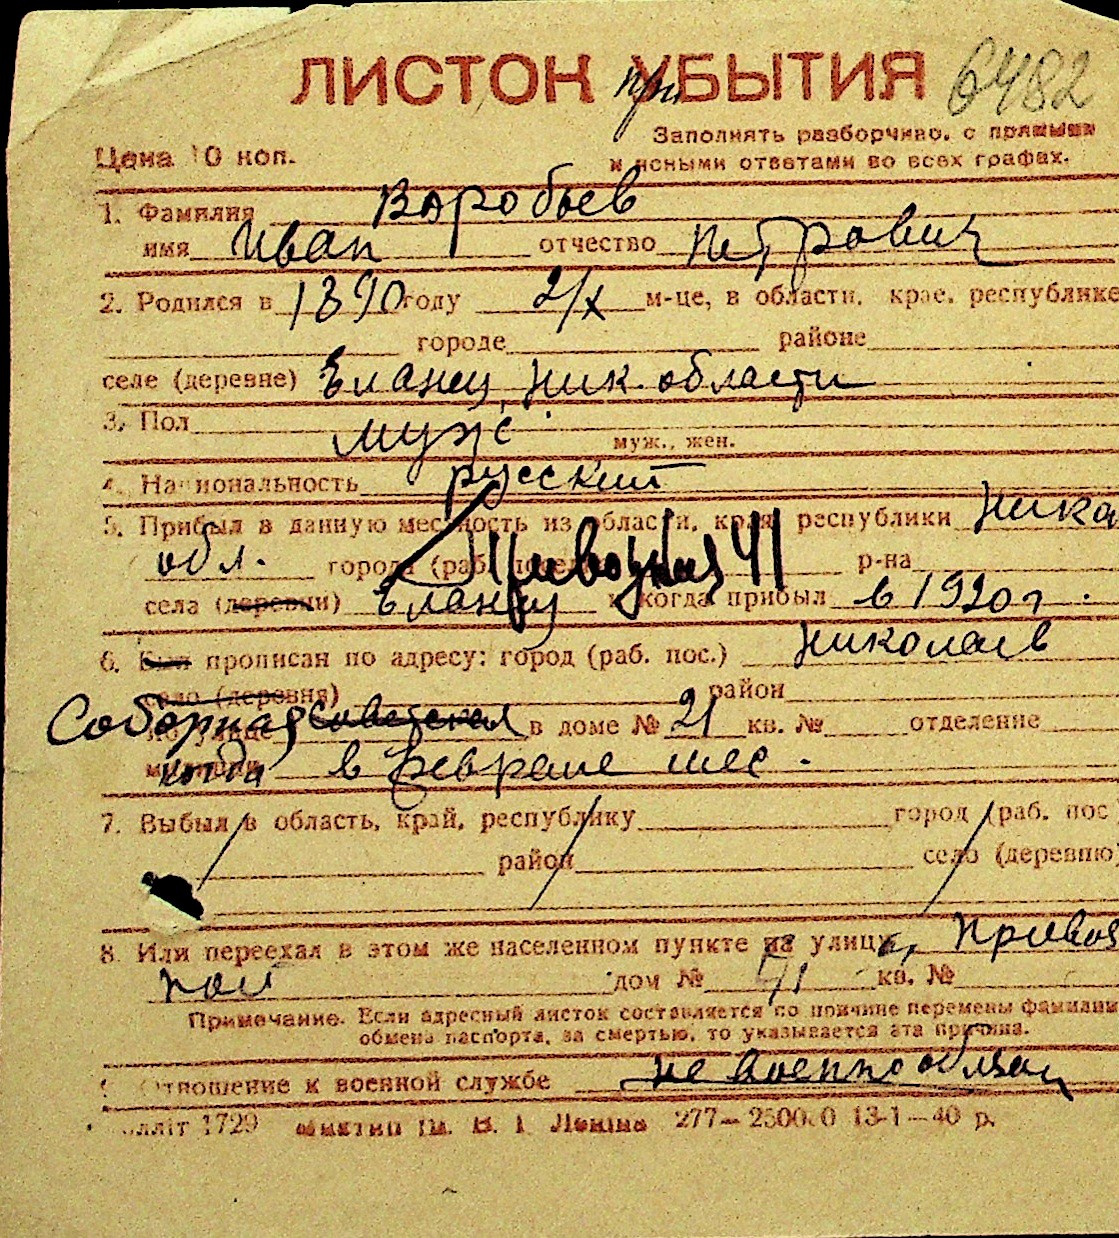 ЛИСТОК при УБЫТИЯ 6482
Заполнять разборчиво, с прямыми
Цена 10 коп.
и ясными ответами во всех графах.
1. Фамилия Воробьев
имя Иван отчество Петрович
2. Родился в 1890 году 2/X м-це, в области, крае, республике
городе районе
селе (деревне) Еланец, Ник. области
3. Пол муж
муж., жен.
4. Национальность русский
5. Прибыл в данную местность из области, края, республики Ника
обл. города (раб. поселка) Привозная 41 р-на
села (деревни) Еланец и когда прибыл в 1920 г.
6. Был прописан по адресу: город (раб. пос.) Николаев
село (деревня) район
Соборная по улице Советская в доме № 21 кв. № отделение
милиции когда в феврале мес.
7. Выбыл в область, край, республику город (раб. пос
район село (деревню)
8. Или переехал в этом же населенном пункте на улицу Привоз
ной дом № 41 кв. №
Примечание. Если адресный листок составляется по причине перемены фамилии
обмена паспорта, за смертью, то указывается эта причина.
9. Отношение к военной службе не военнообязан
лліт 1729 ім. В. І Леніна 277— 13-1—40 р.